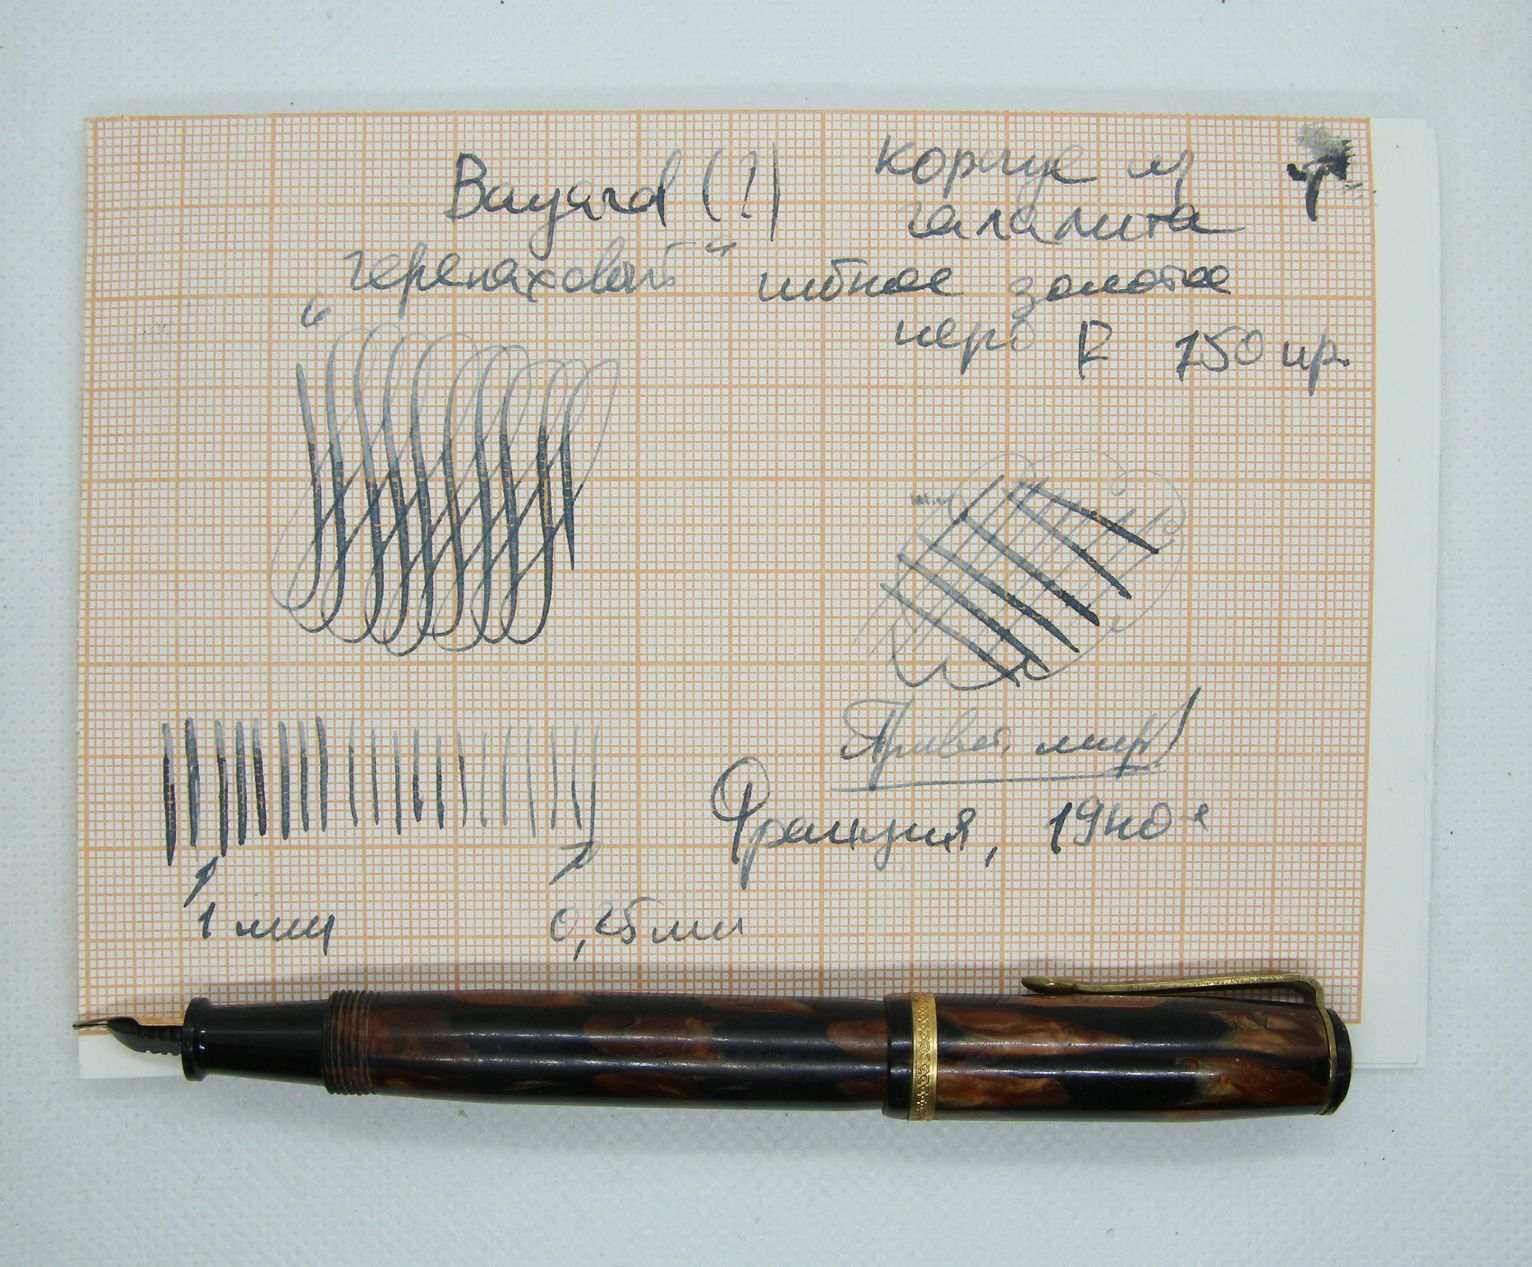 Bayard (?)
"черепаховый"
корпус из
галалита
гибкое золотое
перо F 750 пр.
Привет, мир!
Франция, 1940-е
1 мм
0,25 мм